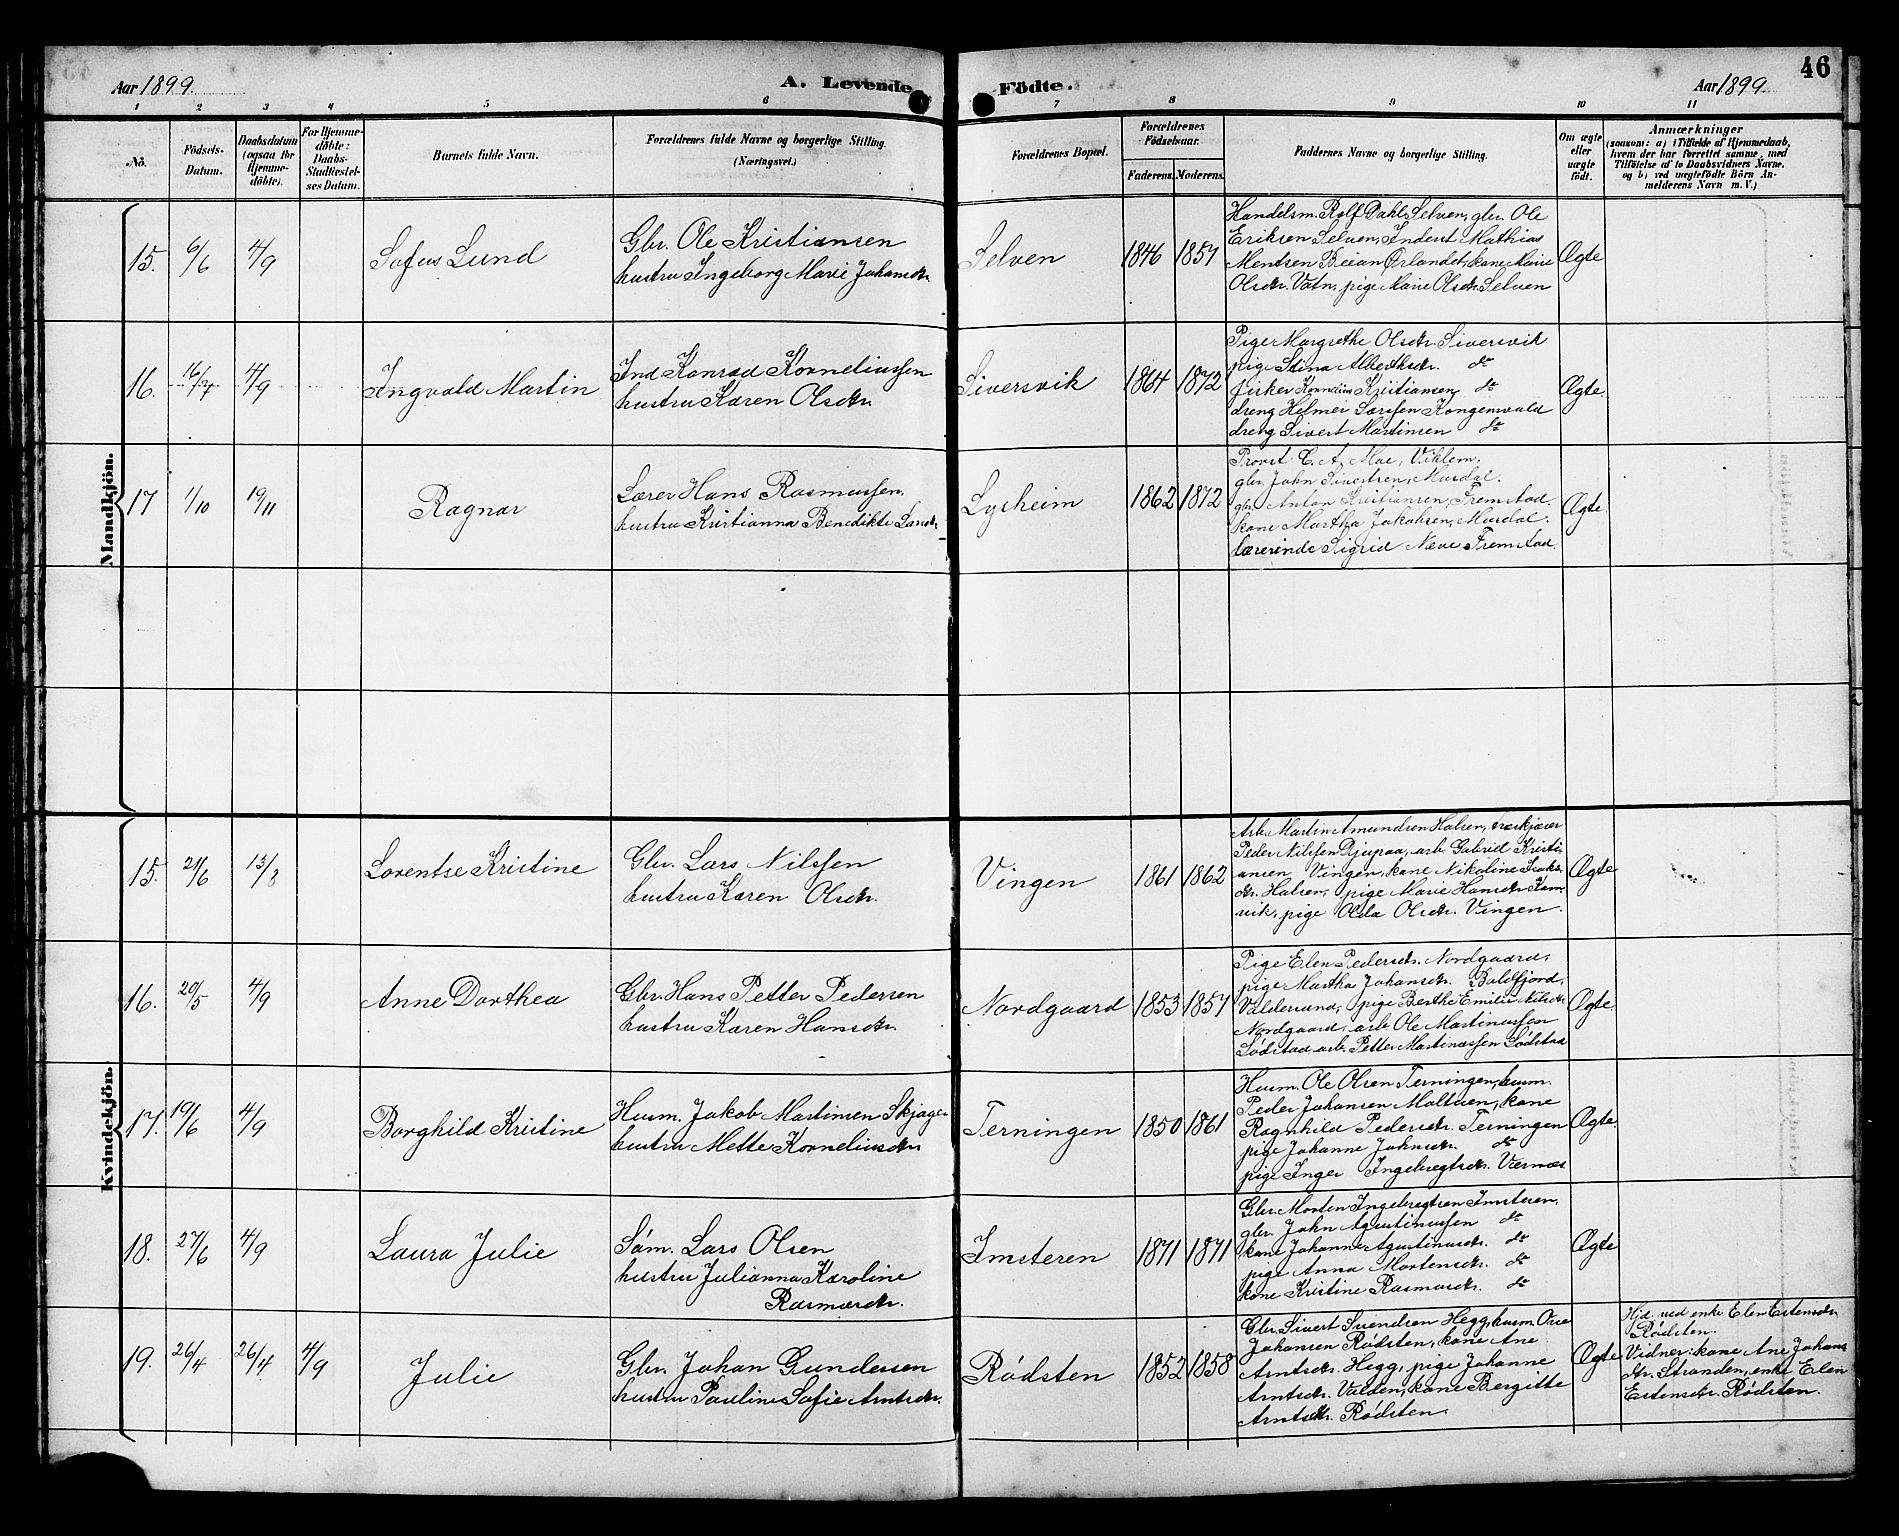 46
Aar 1899.
A. Levende
Födte.
Aar 1899.
1 2 3 4 5 6 7 8 9 10 11
No.
Födsels-
Datum.
Daabsdatum
(ogsaa for
Hjemme-
döbte).
For Hjemme-
döbte:
Daabs-
Stadfæstel-
ses Datum.
Barnets fulde Navn.
Forældrenes fulde Navne og borgerlige Stilling.
(Næringsvei.)
Forældrenes Bopæl.
Forældrenes
Födselsaar.
Faderens. Moderens.
Faddernes Navne og borgerlige Stilling.
Om ægte
eller
uægte
født.
Anmærkninger
(saasom: a) i Tilfælde af Hjemmedaab,
hvem der har forrettet samme, med
Tilføielse af to Daabsvidners Navne,
og b) ved uægtefödte Börn An-
melderens Navn m. V.)
Mandkjön.
15. 6/6 4/9 Sofus Lund
Gbr. Ole Kristiansen
hustru Ingeborg Marie Johansdtr.
Selven 1846 1857
Handelsm. Rolf Dahl, Selven, gbr. Ole
Eriksen Selven, Inderst Mathias
Mentsen Beian Ørlandet, kone Marie
Olsdtr. Vatn, pige Marie Olsdtr. Selven
Ægte
16. 16/7 4/9 Ingvald Martin
Ind Konrad Korneliussen
hustru Karen Olsdtr.
Siversvik 1864 1872
Pige Margrethe Olsdtr. Siversvik
pige Stina Albertsdtr. do
fisker Kornelius Kristiansen do
dreng Helmer Larssen Kongensvold
dreng Sivert Martinsen do
Ægte
17 1/10 19/11 Ragnar
Lærer Hans Rasmussen,
hustru Kristianna Benedikte Larsdtr.
Lysheim 1862 1872
Provst C. A. Moe, Viklem,
gbr. John Sivertsen, Mardal,
gbr. Anton Kristiansen, Fremstad
kone Martha Jakobsen, Mardal.
lærerinde Sigrid Næve Fremstad
Ægte
Kvindekjön.
15. 21/6 13/8 Lorentse Kristine
Gbr. Lars Nilssen
hustru Karen Olsdtr.
Vingen 1861 1862
Arb. Martin Amundsen Halsen, træskjærer
Peder Nilssen Djupaa, arb. Gabriel Kristi-
ansen Vingen, kone Nikoline Isaks-
dtr. Halsen, pige Marie Hansdtr. Kam-
vik, pige Olda Olsdtr. Vingen.
Ægte
16. 20/5 4/9 Anne Dorthea
Gbr. Hans Petter Pedersen
hustru Karen Hansdtr.
Nordgaard 1853 1857
Pige Elen Pedersdtr. Nordgaard,
pige Martha Johansdtr. Boldfjord,
Valdersund, pige Berthe Emilie Nilsdtr.
Nordgaard, arb. Ole Martinussen
Lødstad, arb. Petter Martinussen Lødstad
Ægte
17. 19/6 4/9 Borghild Kristine
Husm. Jakob Martinsen Skjage-
hustru Mette Korneliusdtr.
Terningen 1850 1861
Husm. Ole Olsen Terningen, husm.
Peder Johansen Moltuen, kone
Ragnhild Pedersdtr. Terningen
pige Johanne Johnsdtr. do
pige Inger Ingebregtsdtr. Værnæs
Ægte
18. 27/6 4/9 Laura Julie
Søm. Lars Olsen
hustru Julianna Karoline
Rasmusdtr.
Imsteren 1871 1871
Gbr. Morten Ingebregtsen Imsteren,
gbr. John Agustinussen do
kone Johanne Agustinusdtr. do
pige Anna Mortensdtr. do
kone Kristine Rasmusdtr. do
Ægte
19. 26/4 26/4 4/9 Julie
Gbr. Johan Gundersen
hustru Pauline Sofie Arntsdtr.
Rødsten 1852 1858
Gbr. Sivert Svendsen Hegg, husm. Ove
Johansen Rødsten, kone Ane
Arntsdtr. Hegg, pige Johanne
Arntsdtr. Valden, kone Bergitte
Arntsdtr. Rødsten.
Ægte
Hjd. ved enke Elen Estensdtr.
Rødsten.
Vidner: kone Ane Johans
dtr. Stranden, enke Elen
Estensdtr. Rødsten.